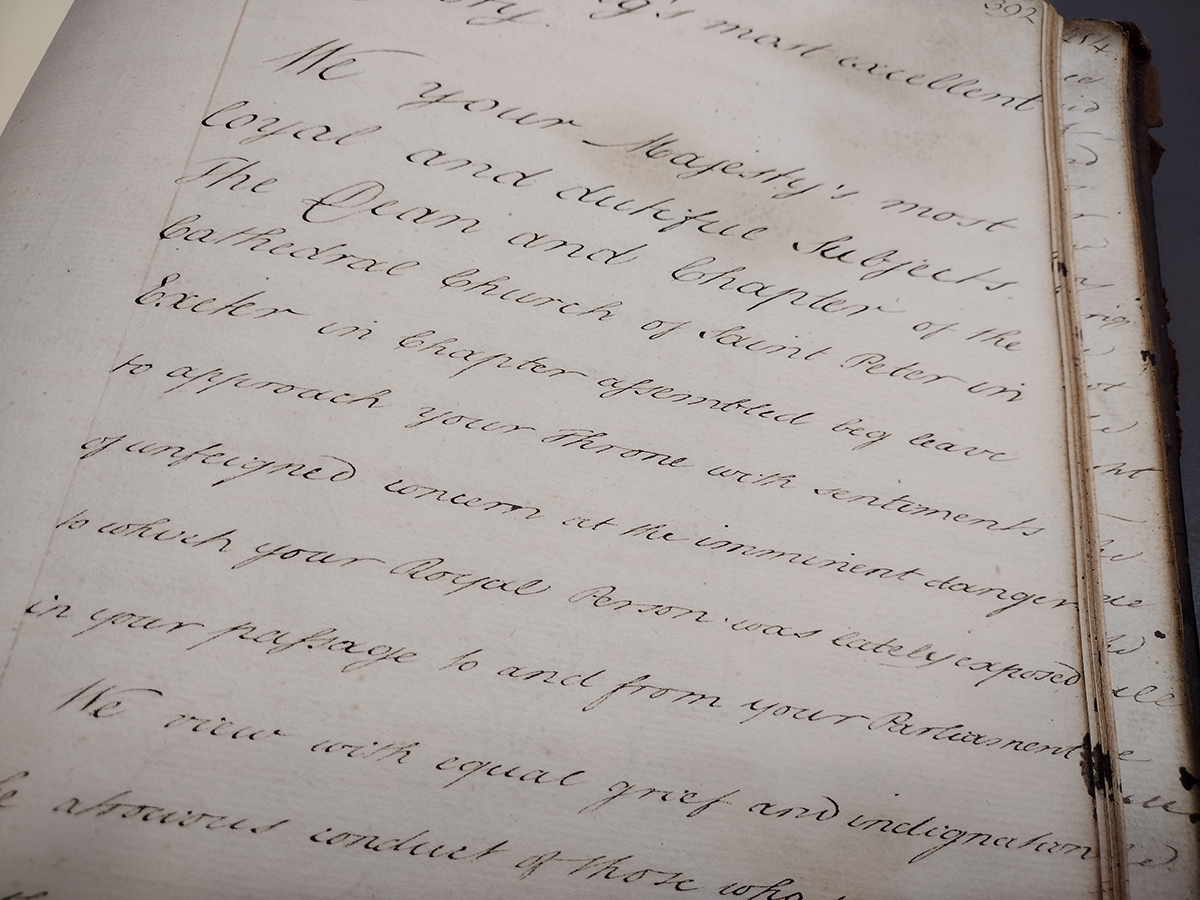 392
g's most excellent
ry.
We your Majesty's most
loyal and dutiful Subjects
The Dean and Chapter of the
Cathedral Church of Saint Peter in
Exeter in Chapter aſsembled beg leave
to approach your Throne with sentiments
of unfeigned concern at the imminent danger
to which your Royal Person was lately exposed
in your paſsage to and from your Parliament
We view with equal grief and indignation
atrocious conduct of those who